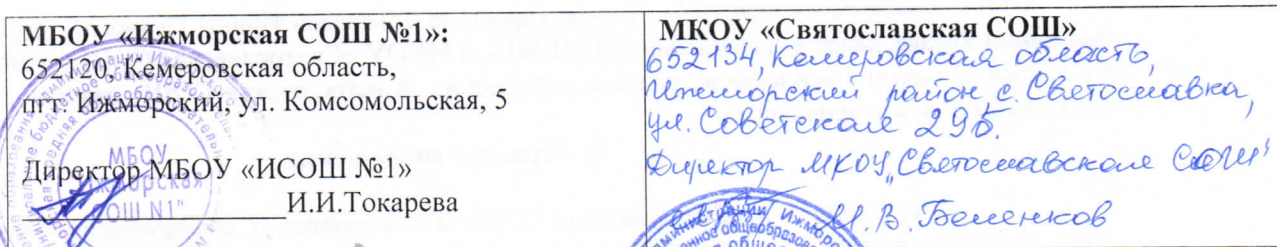 МБОУ «Ижморская СОШ №1»:
652120, Кемеровская область,
пгт. Ижморский, ул. Комсомольская, 5
Директор МБОУ «ИСОШ №1»
И.И.Токарева
МБОУ
"Ижморская
СОШ N1"
МКОУ «Святославская СОШ»
652134, Кемеровская область,
Ижморский район с. Святославка,
ул. Советская 29б.
Директор МКОУ „Святославская СОШ"
И.В. Беленков